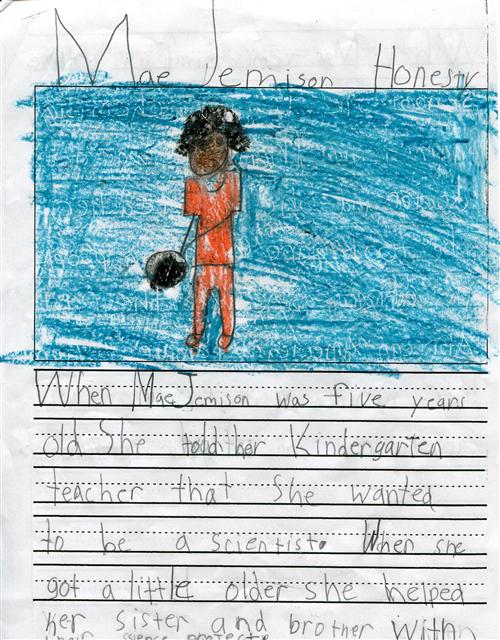 Mae Jemison Honesty
When Mae Jemison was five years
old She told her Kindergarten
teacher that She wanted
to be a scientist. When she
got a little older she helped
her sister and brother with
their science projects